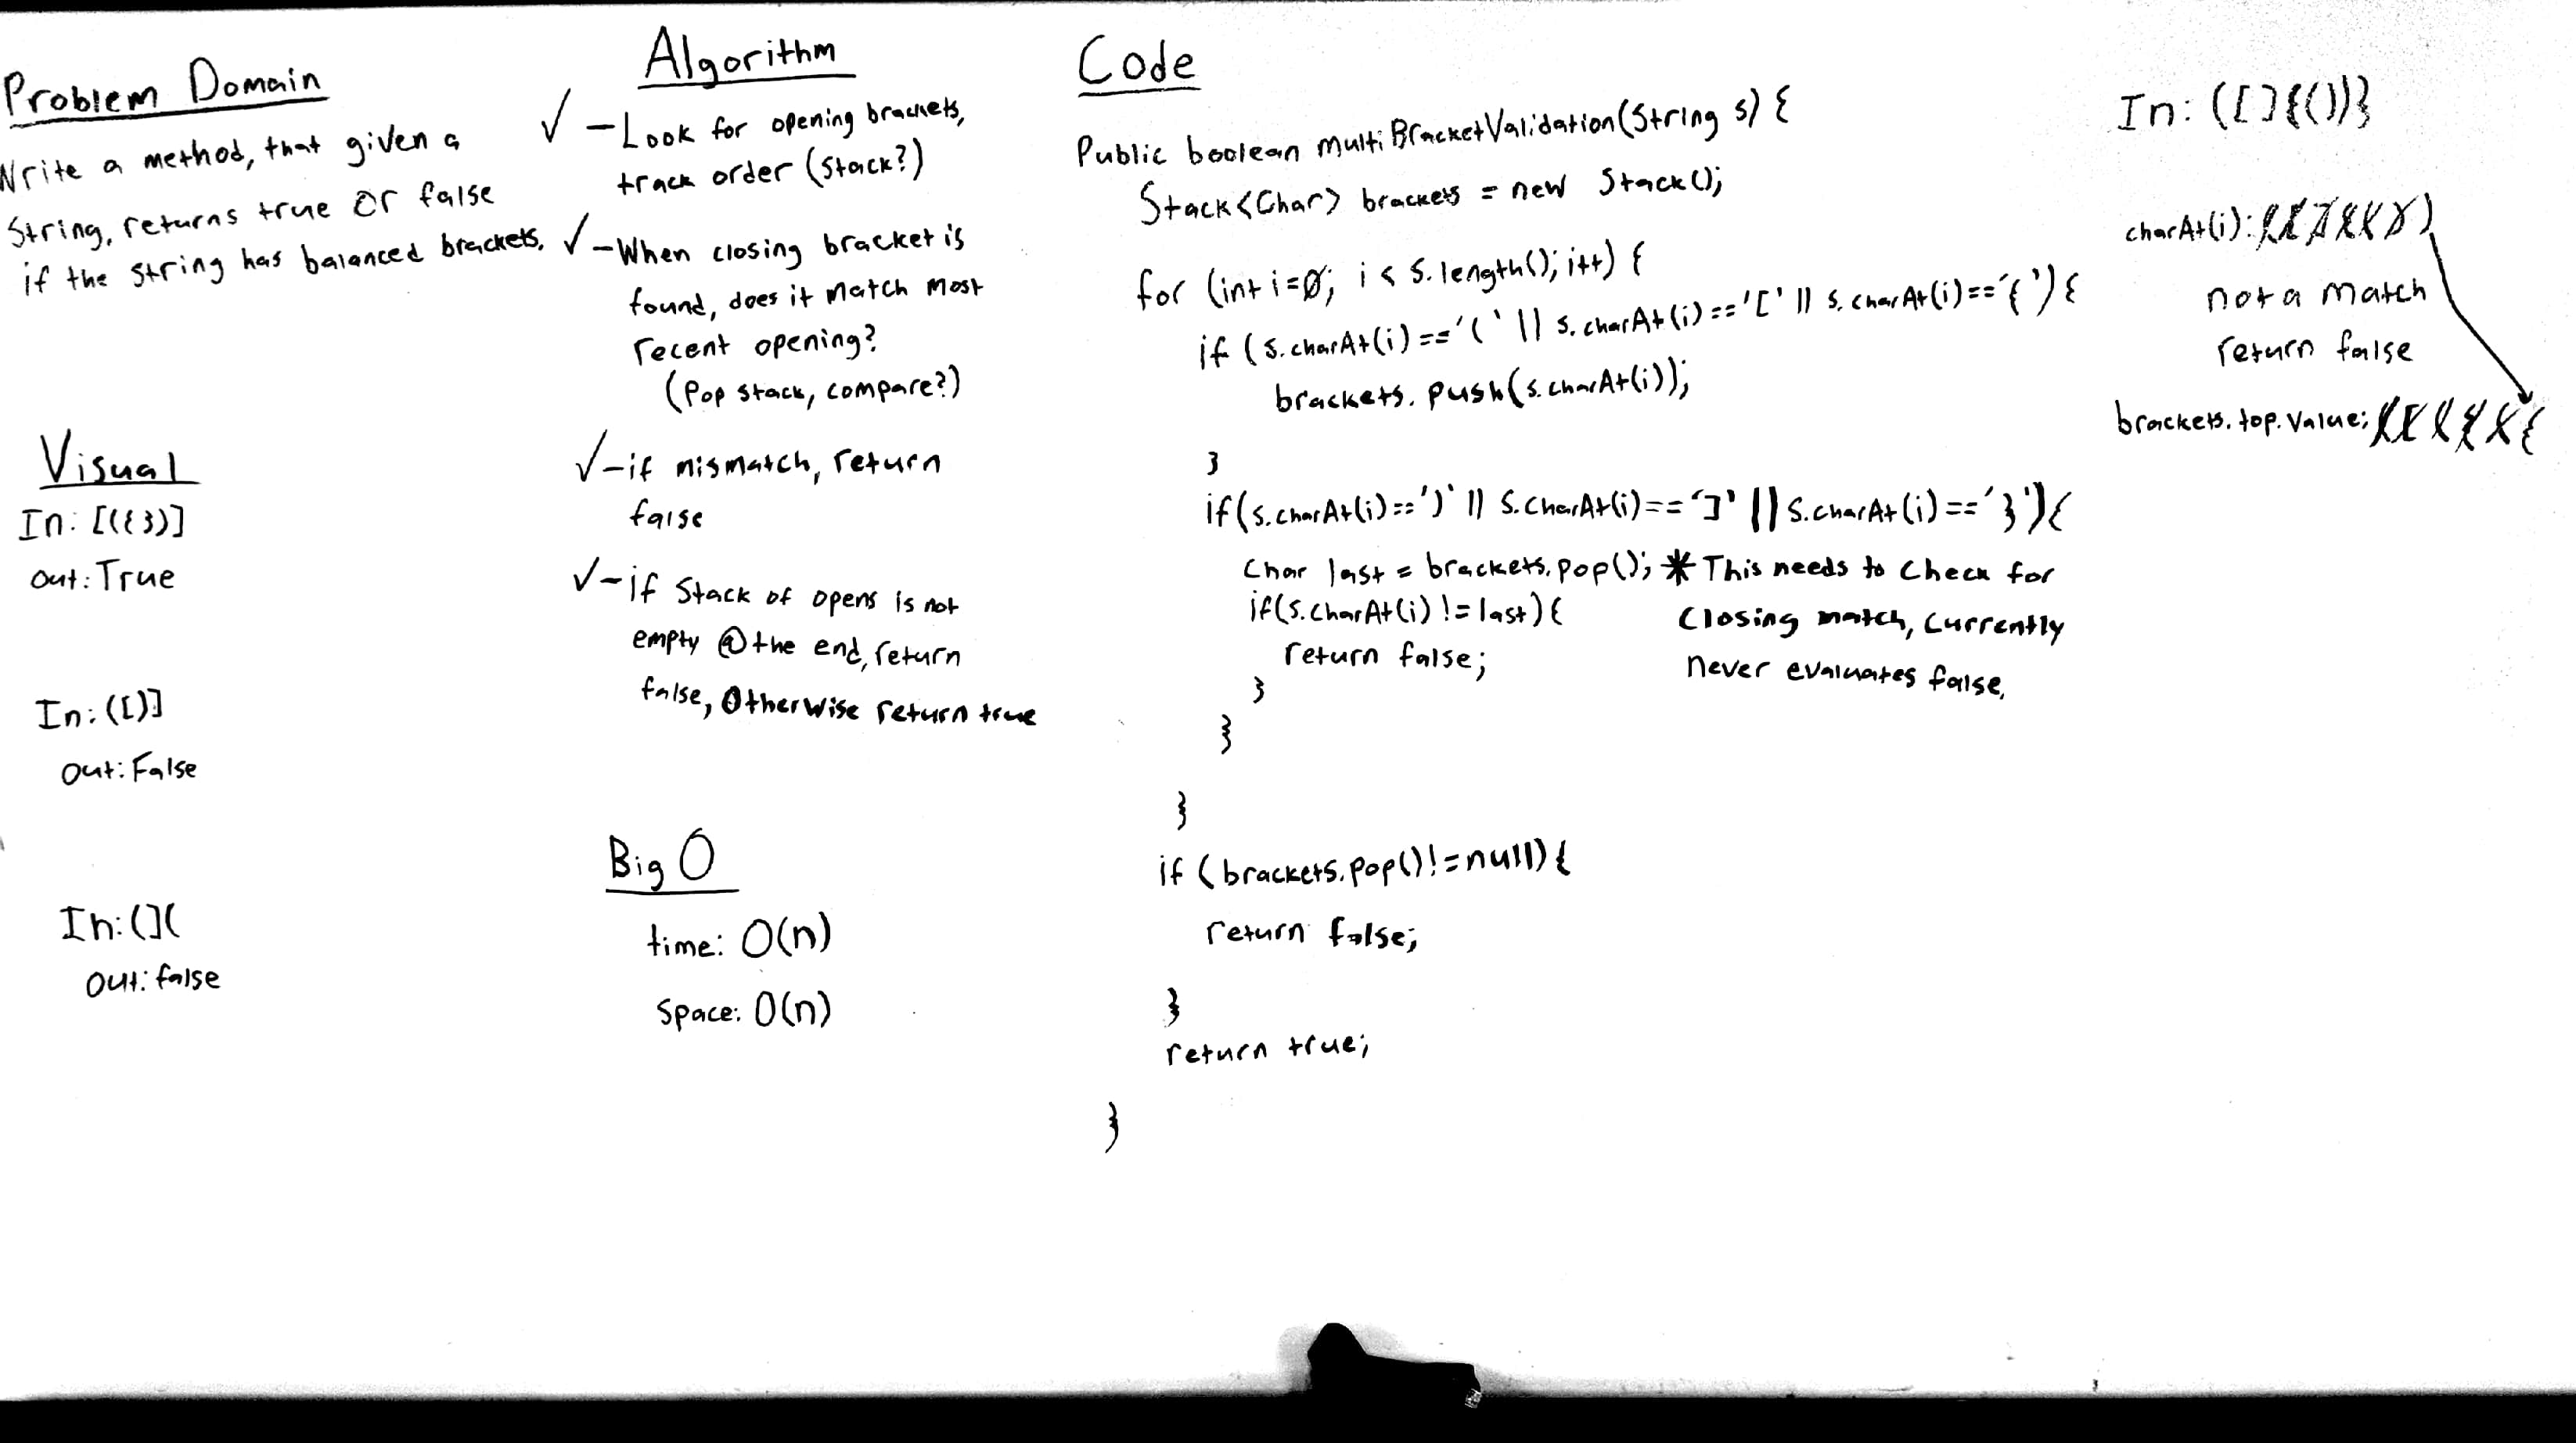 Problem Domain
Write a method, that given a
String, returns true or false
if the string has balanced brackets.
Visual
In: [({})]
out: True
In: ([)]
out: False
In: (](
out: false
Algorithm
✓ - Look for opening brackets,
track order (Stack?)
✓ - When closing bracket is
found, does it match most
recent opening?
(Pop stack, compare?)
✓ - if mismatch, return
false
✓ - if Stack of opens is not
empty @ the end, return
false, Otherwise return true
Big O
time: O(n)
Space: O(n)
Code
Public boolean multiBracketValidation(String s) {
Stack<Char> brackets = new Stack();
for (int i=0; i < s.length(); i++) {
if (s.charAt(i) == '(' || s.charAt(i) == '[' || s.charAt(i) == '{') {
brackets.push(s.charAt(i));
}
if(s.charAt(i) == ')' || s.charAt(i) == ']' || s.charAt(i) == '}') {
Char last = brackets.pop(); * This needs to check for
if(s.charAt(i) != last) { Closing match, Currently
return false; never evaluates false.
}
}
}
if (brackets.pop() != null) {
return false;
}
return true;
}
In: ([]{())}
charAt(i): )
not a match
return false
brackets.top.value: {